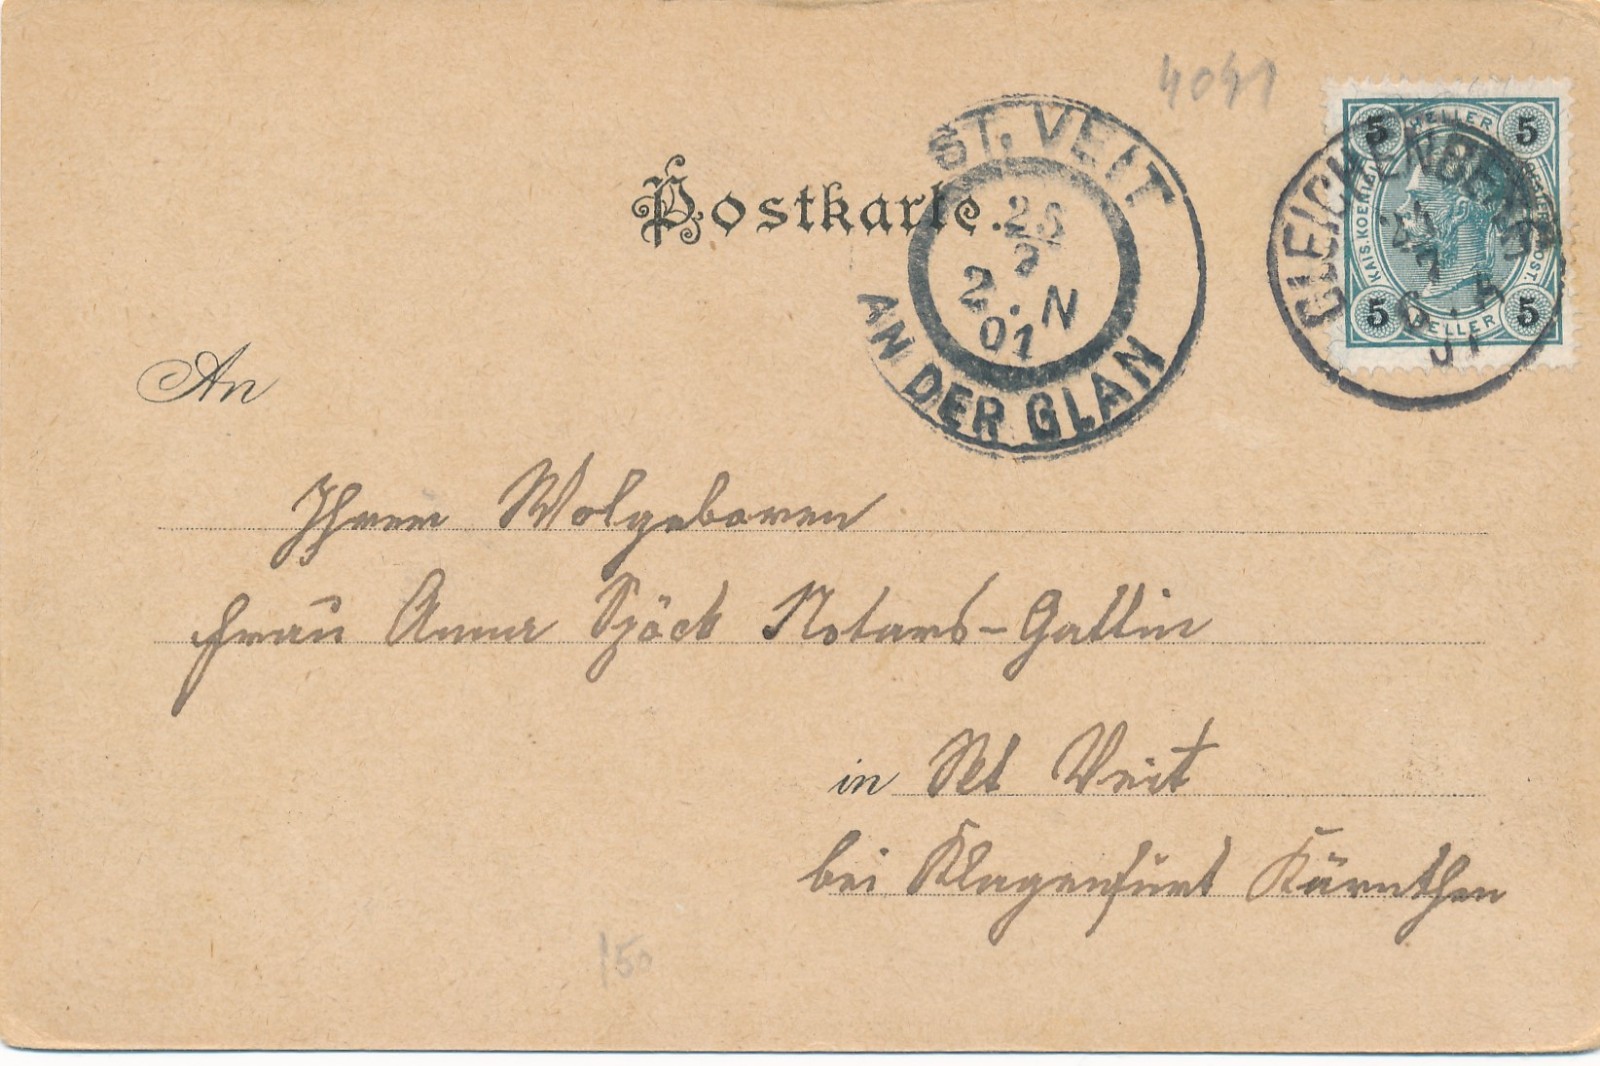 4041
Postkarte.
ST. VEIT
2. N
01
AN DER GLAN
GLEICHENBERG
5 HELLER 5
KAIS. KOENIGL.
5 HELLER 5
An
Ihrer Wolgeboren
Frau Anna Spöck Notars-Gattin
in St Veit
bei Klagenfurt Kärnthen
150